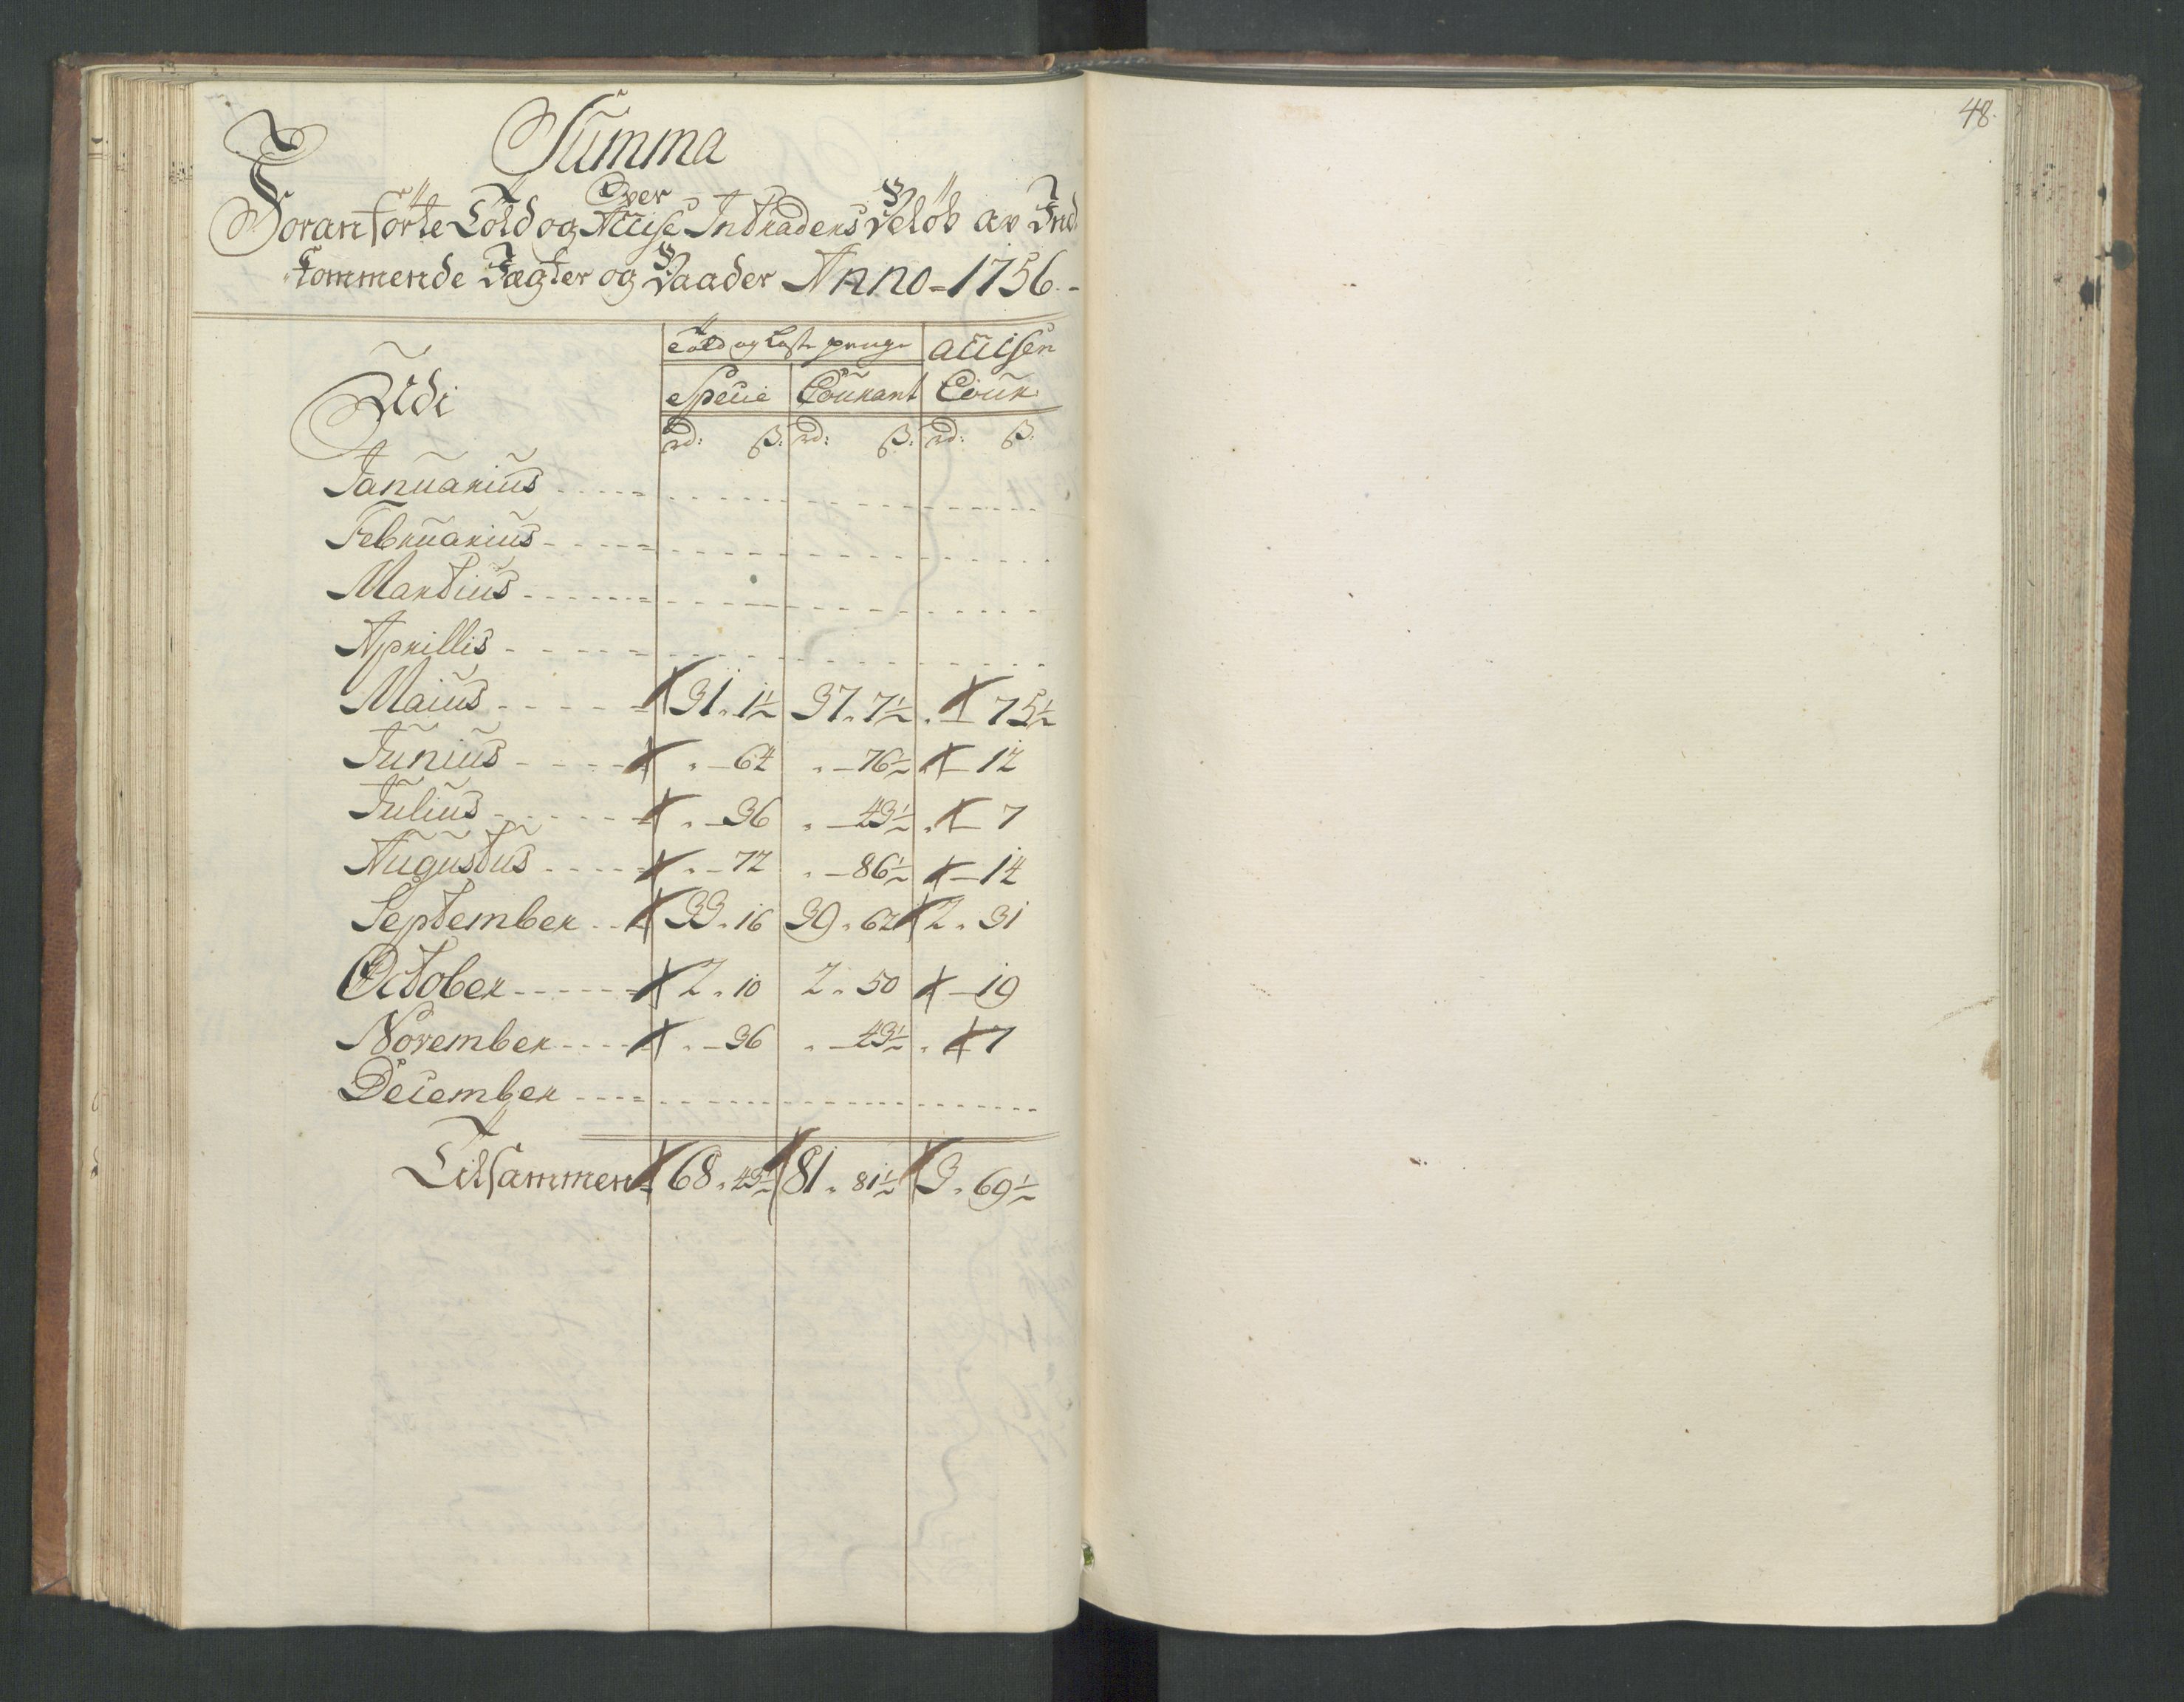 48.
Summa
Over
Foranförte Told og Accise Intradens Beløb av Ind
kommende Jægter og Baader Anno 1756.
Told og Laste penge accisen
Udi Specie Courant Cour
rd: ß: rd: ß: rd: ß:
Januarius
Februarius
Martius
Aprillis
Maius 31. 1½ 37. 7½ . 75½
Junius . 64 . 76½ 12
Julius . 36 . 43½ . 7
Augustus . 72 . 86½ 14
September 33. 16 39. 62 2. 31
October 2. 10 2. 50 19
November . 36 . 43½ . 7
December
Tilsammen 68. 43½ 81. 81½ 3. 69½